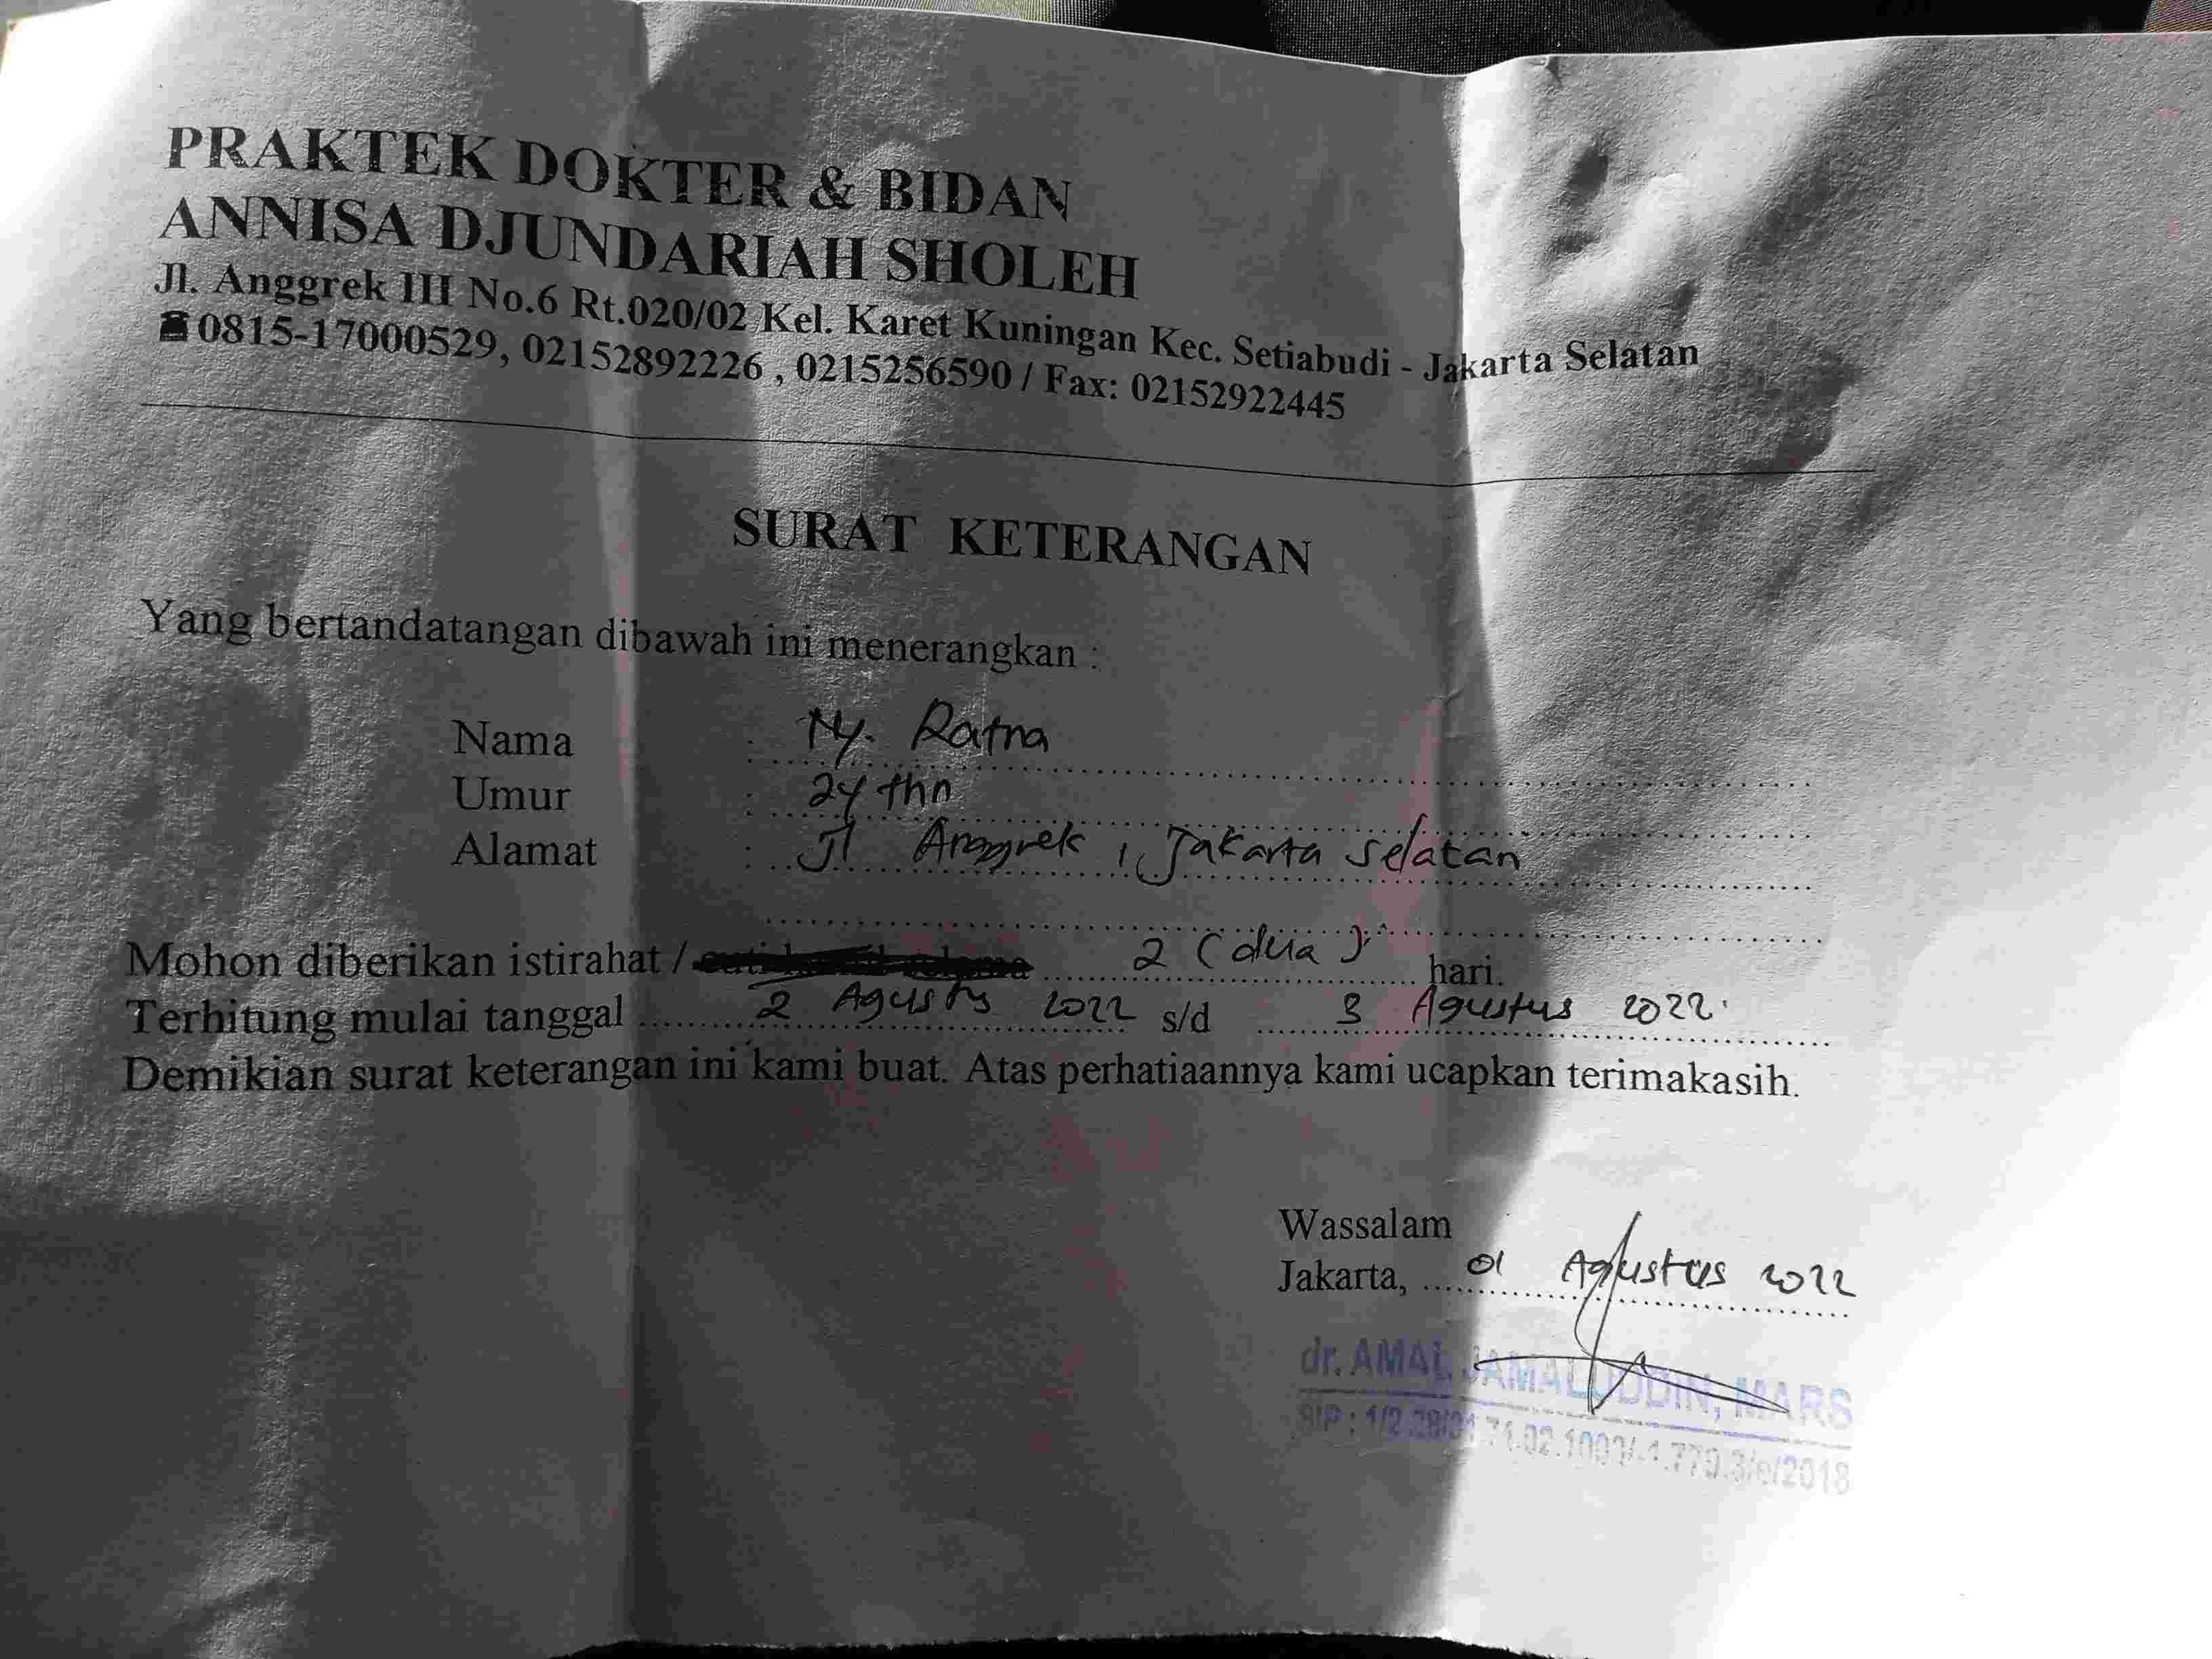 PRAKTEK DOKTER & BIDAN
ANNISA DJUNDARIAH SHOLEH
Jl. Anggrek III No.6 Rt.020/02 Kel. Karet Kuningan Kec. Setiabudi - Jakarta Selatan
☎0815-17000529, 02152892226 , 0215256590 / Fax: 02152922445
SURAT KETERANGAN
Yang bertandatangan dibawah ini menerangkan :
Nama : Ny. Ratna
Umur : 24 thn
Alamat : Jl Anggrek , Jakarta Selatan
Mohon diberikan istirahat / 2 (dua) hari.
Terhitung mulai tanggal 2 Agustus 2022 s/d 3 Agustus 2022.
Demikian surat keterangan ini kami buat. Atas perhatiaannya kami ucapkan terimakasih.
Wassalam
Jakarta, 01 Agustus 2022
dr. AMAL JAMALUDDIN, MARS
SIP :